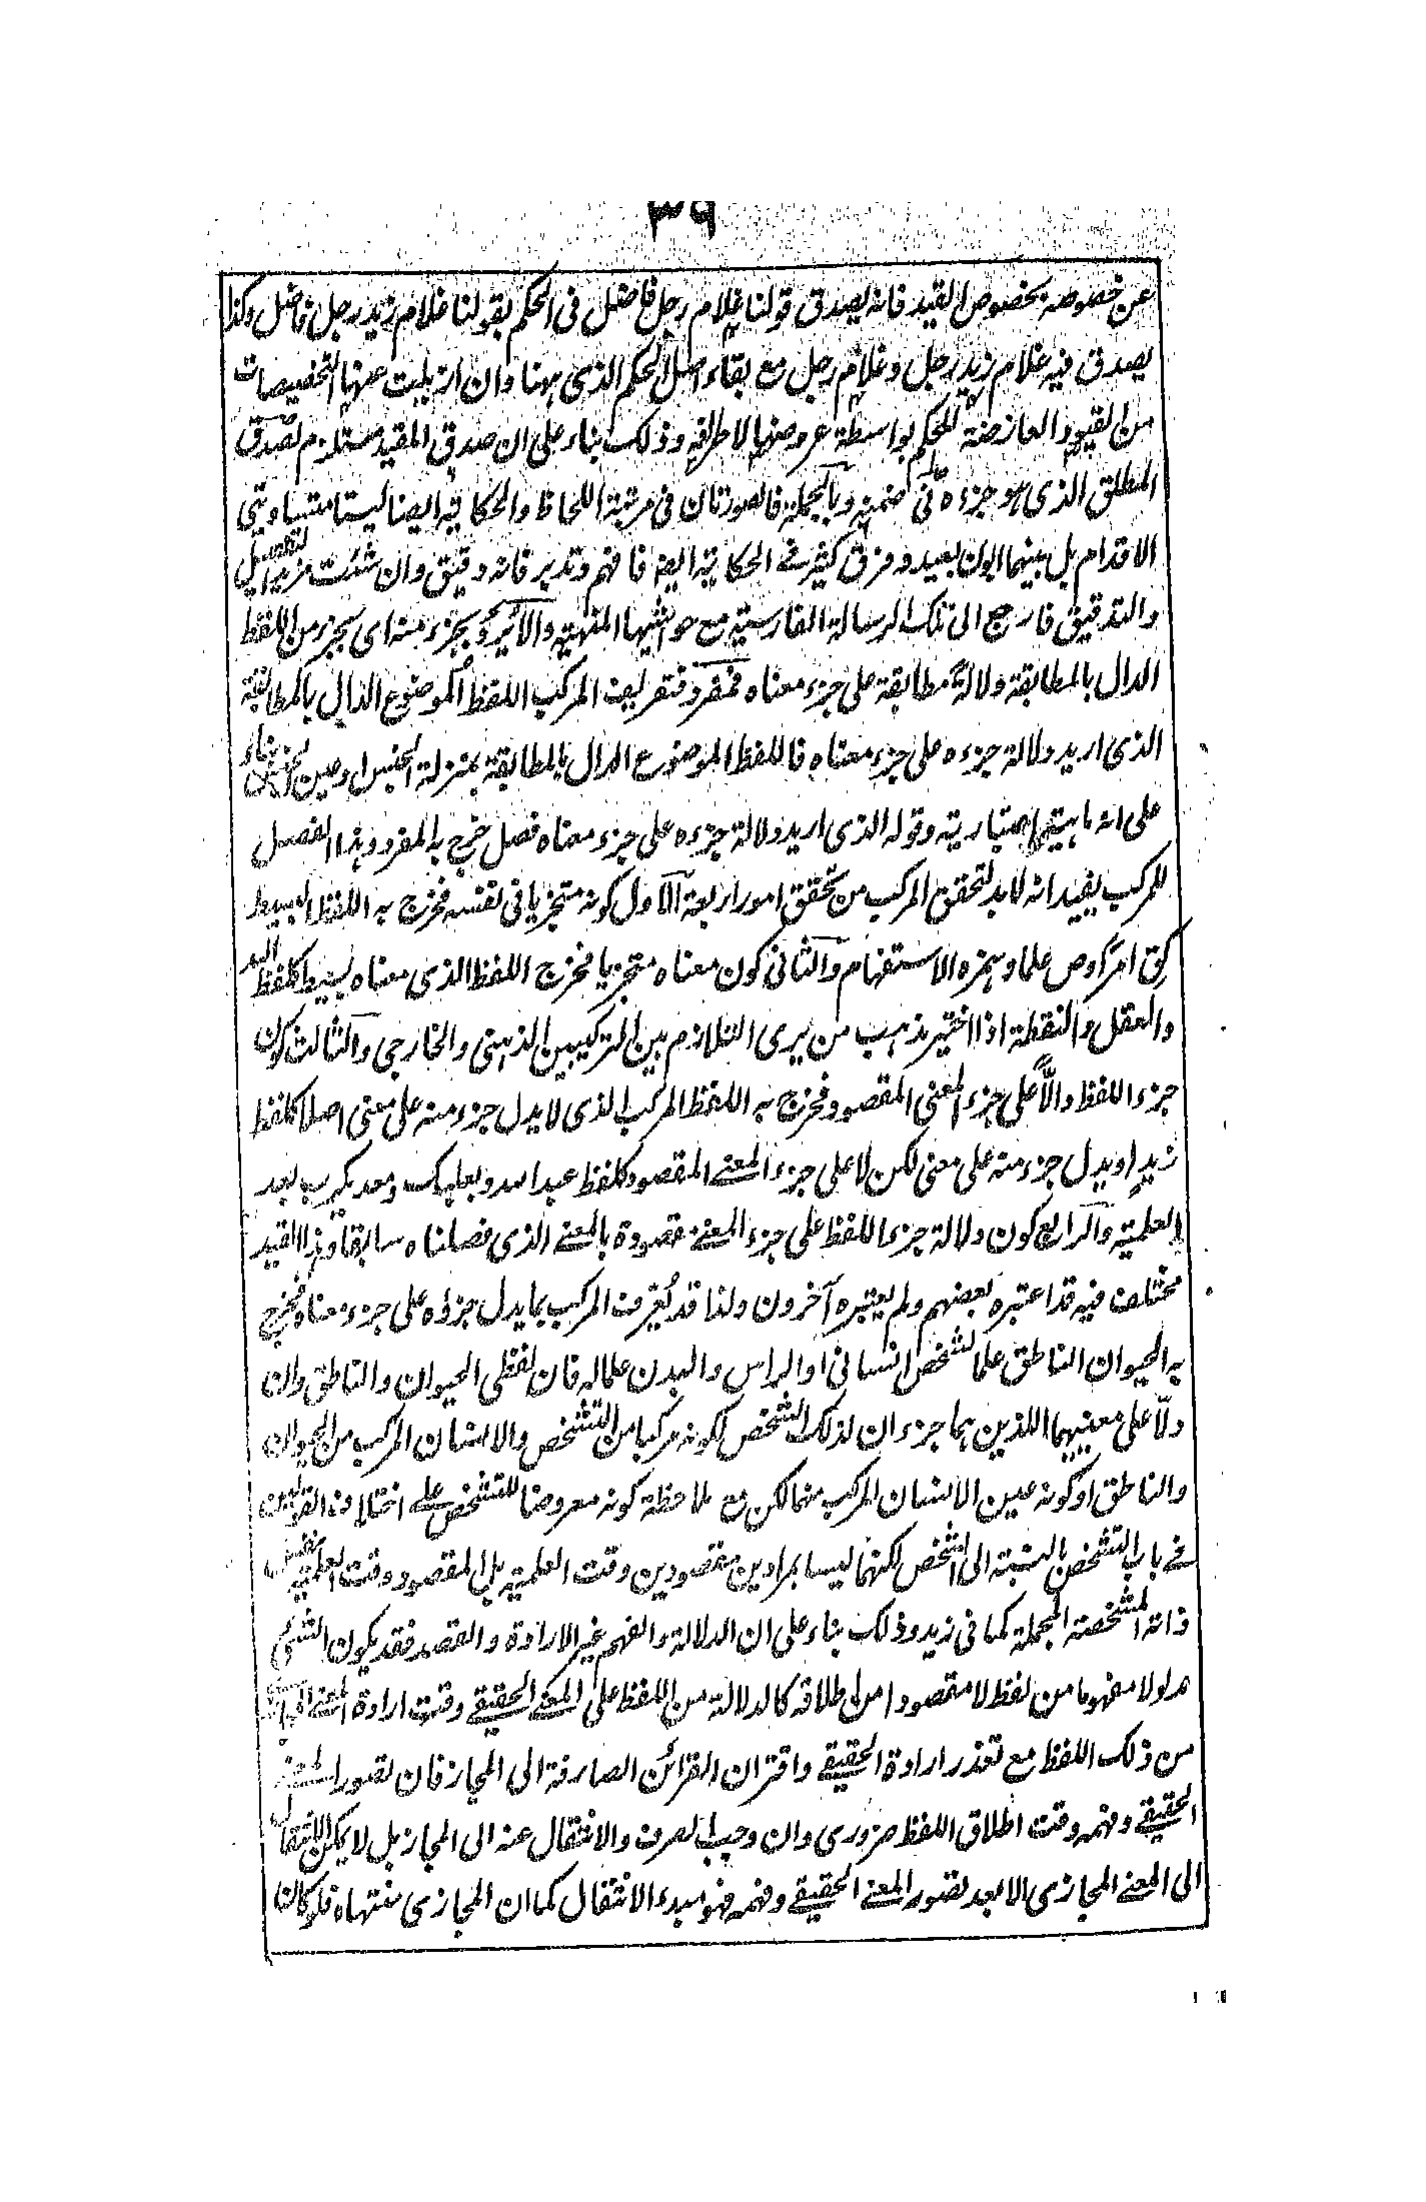 ٣٩
عن خصوصه بخصوص القيد فانه يصدق قولنا غلام رجل فاضل فى الحكم بقولنا غلام زيد رجل فاضل وكذا
يصدق فيه غلام زيد رجل وغلام رجل مع بقاء اصل الحكم الذى ههنا وان ازيلت عنها التخصيصات
من القيود العارضة للحكم بواسطة عروضها لاطرافه وذلك بناء على ان صدق المقيد مستلزم لصدق
المطلق الذى هو جزءه فى ضمنه وبالجملة فالصورتان فى مرتبة اللحاظ والحكاية ايضا ليستا متساويتى
الاقدام بل بينهما البون بعيد وفرق كثير فى الحكاية ايضا فافهم وتدبر فانه دقيق وان شئت مزيد التفصيل
والتدقيق فارجع الى تلك الرسالة الفارسية مع حواشيها المنهية والا يرد بجزء منه اى بجزء من اللفظ
الدال بالمطابقة دلالة مطابقة على جزء معناه فمفرد فتعريف المركب اللفظ الموضوع الدال بالمطابقة
الذى اريد دلالة جزءه على جزء معناه فاللفظ الموضوع الدال بالمطابقة بمنزلة الجنس او عين الجنس بناء
على انه ماهية اعتبارية وقوله الذى اريد دلالة جزءه على جزء معناه فصل خرج به المفرد وهذا الفصل
للمركب يفيد انه لابد لتحقق المركب من تحقق امور اربعة الاول كونه متجزيا فى نفسه فخرج به اللفظ البسيط
كق امرا وص علما وهمزه الاستفهام والثانى كون معناه متجزيا فخرج اللفظ الذى معناه بسيط كلفظ الله
والعقل والنقطة اذا اختير مذهب من يرى التلازم بين التركيبين الذهنى والخارجى والثالث كون
جزء اللفظ دالا على جزء المعنى المقصود فخرج به اللفظ المركب الذى لا يدل جزء منه على معنى اصلا كلفظ
زيد او يدل جزء منه على معنى لكن لا على جزء المعنے المقصود كلفظ عبد الله وبعلبك ومعديكرب بعد
العلمية والرابع كون دلالة جزء اللفظ على جزء المعنے مقصودة بالمعنے الذى فصلناه سابقا وهذا القيد
مختلف فيه قد اعتبره بعضهم ولم يعتبره آخرون ولذا قد يُعرّف المركب بما يدل جزؤه على جزء معناه فخرج
به الحيوان الناطق علما لشخص انسانى او الراس والبدن علما له فان لفظى الحيوان والناطق وان
دلّا على معنييهما اللذين هما جزءان لذلك الشخص لكونه مركبا من التشخص والانسان المركب من الحيوان
والناطق او كونه عين الانسان المركب منهما لكن مع ملاحظة كونه معروضا للتشخص على اختلاف القولين
فى باب التشخص بالنسبة الى الشخص لكنهما ليسا بمرادين مقصودين وقت العلمية بل المقصود وقت العلمية نفس
ذاته المشخصة المجملة كما فى زيد وذلك بناء على ان الدلالة والفهم غير الارادة والقصد فقد يكون الشئ
مدلولا مفهوما من لفظ لا مقصودا من اطلاقه كالدلالة من اللفظ على المعنے الحقيقے وقت ارادة المعنے
من ذلك اللفظ مع تعذر ارادة الحقيقے واقتران القرائن الصارفة الى المجاز فان تصور المعنے
الحقيقے وفهمه وقت اطلاق اللفظ ضرورى وان وجب الصرف والانتقال عنه الى المجاز بل لا يمكن الانتقال
الى المعنے المجازى الا بعد تصور المعنے الحقيقے وفهمه فهو مبدء الانتقال كما ان المجازى منتهاه فلو كان